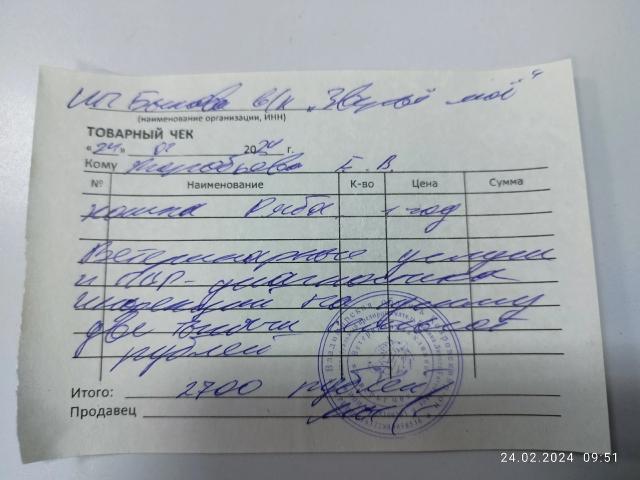 ИП Быкова в/к „Зверьё моё“
(наименование организации, ИНН)
ТОВАРНЫЙ ЧЕК
«24» 02 2024 г.
Кому Е. В.
№ Наименование К-во Цена Сумма
кошка Ряба 1 год
Ветеринарные услуги
и ПЦР-диагностика
инфекций на сумму
две тысячи семьсот
рублей
Итого: 2700 рублей
Продавец
24.02.2024 09:51